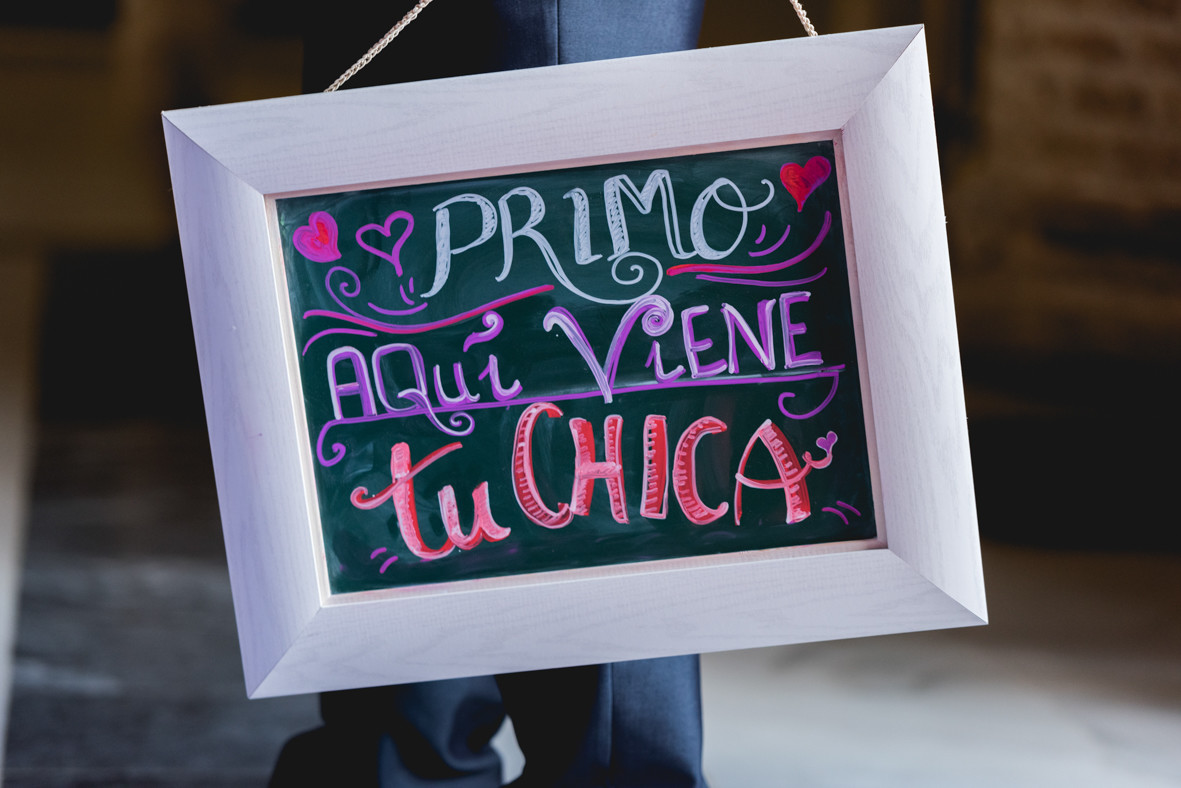 PRIMO
AQuí ViENE
tu CHICA